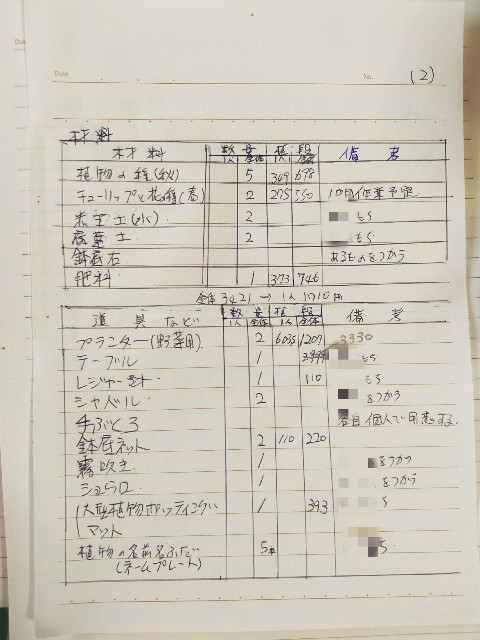 Date
No.
(2)
材料
材料 数量 値段 備考
1人 全体 1人 全体
植物の種(秋) 5 349 698
チューリップと花の種(春) 2 275 550 1回目作業予定
赤玉土(小) 2 もち
腐葉土 2 もち
鉢底石 あるものをつかう
肥料 1 373 746
全体 3421 → 1人 1710円
道具など 数量 値段 備考
1人 全体 1人 全体
プランター(野菜用) 2 6035 1207 3330
テーブル 1 もち
レジャーシート 1 110 もち
シャベル 2 をつかう
手ぶくろ 各自個人で用意する.
鉢底ネット 2 110 220
霧吹き 1 をつかう
ジョウロ 1 をつかう
大型植物ポッティング 1 393
マット
植物の名前名ふだ 5本
(ネームプレート)